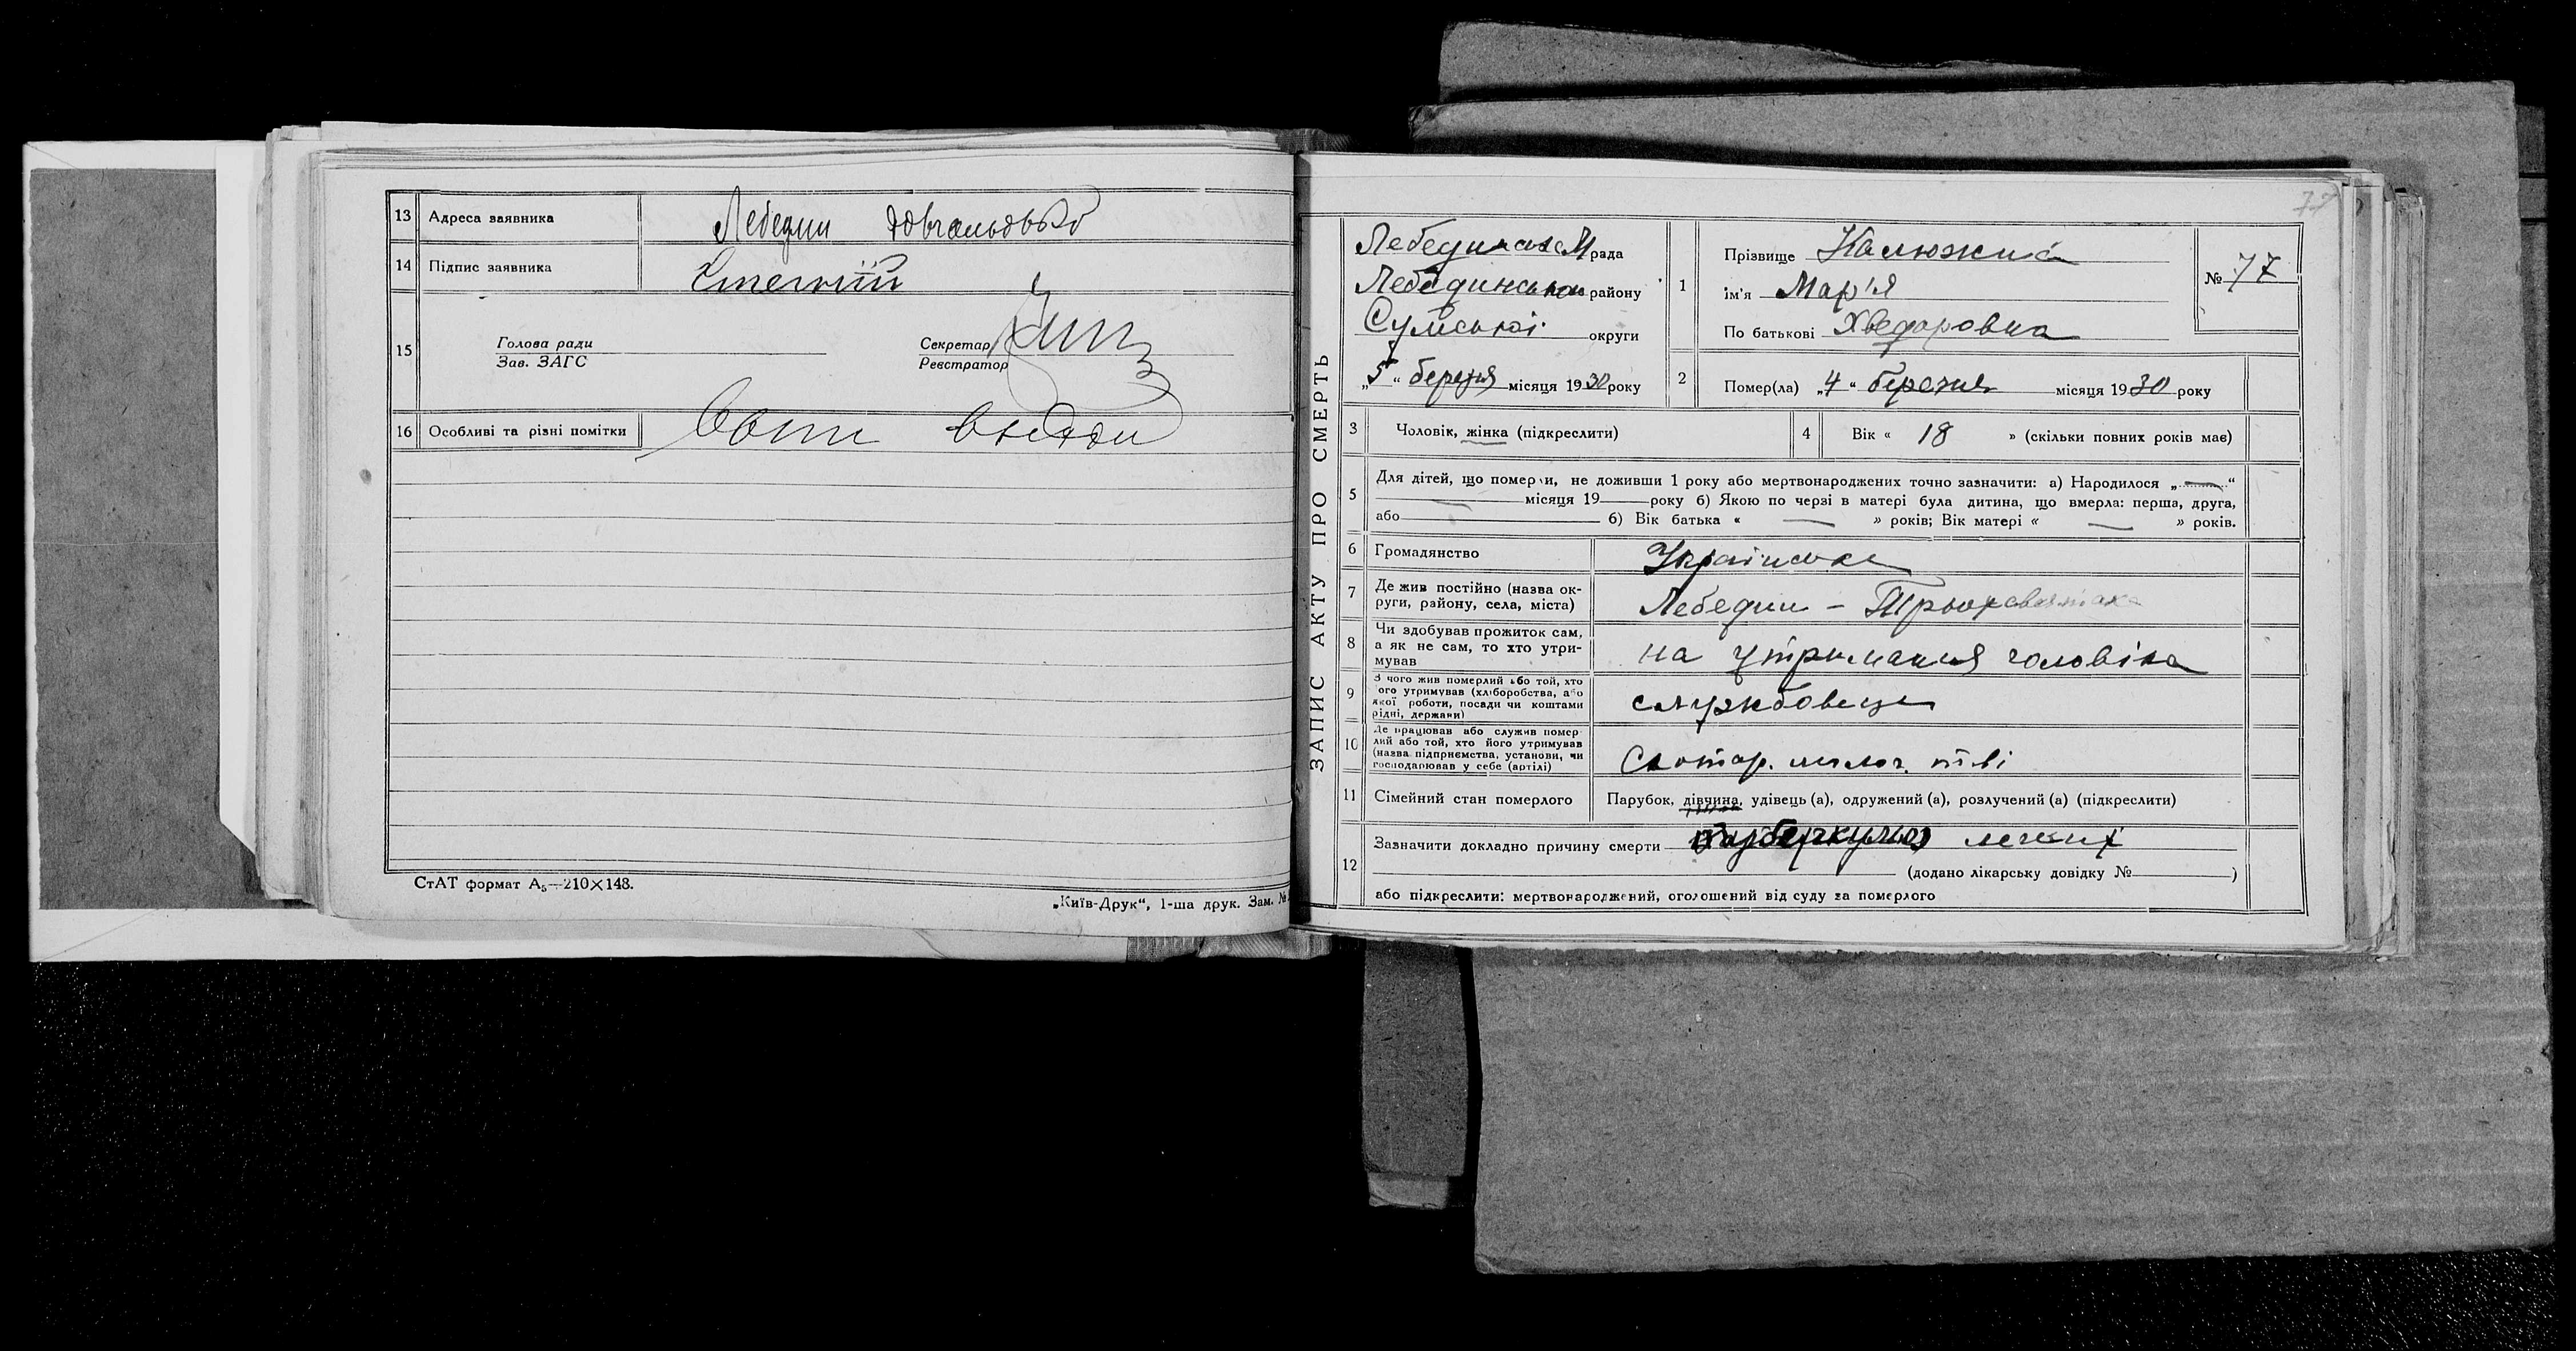 13 Адреса заявника Лебедин
14 Підпис заявника
15 Голова ради
Зав. ЗАГС
Секретар
Реєстратор
16 Особливі та різні помітки
СтАТ формат А₅—210×148.
„Київ-Друк“, 1-ша друк. Зам. №
77
ЗАПИС АКТУ ПРО СМЕРТЬ
Лебединська М рада
Лебединського району
Сумської округи
„5“ березня місяця 1930 року
1 Прізвище Калюжна
ім'я Мар'я
По батькові Хведоровна
№ 77
2 Помер(ла) „4“ березня місяця 1930 року
3 Чоловік, жінка (підкреслити)
4 Вік « 18 » (скільки повних років має)
5 Для дітей, що померли, не доживши 1 року або мертвонароджених точно зазначити: а) Народилося „—“
— місяця 19— року б) Якою по черзі в матері була дитина, що вмерла: перша, друга,
або — б) Вік батька « — » років; Вік матері « — » років.
6 Громадянство Українське
7 Де жив постійно (назва ок-
руги, району, села, міста) Лебедин –
8 Чи здобував прожиток сам,
а як не сам, то хто утри-
мував на утримання чоловіка
9 З чого жив померлий або той, хто
його утримував (хліборобства, або
якої роботи, посади чи коштами
рідні, держави) службовець
10 Де працював або служив помер-
лий або той, хто його утримував
(назва підприємства, установи, чи
господарював у себе (артілі)
11 Сімейний стан померлого Парубок, дівчина, удівець (а), одружений (а), розлучений (а) (підкреслити)
12 Зазначити докладно причину смерти туберкульоз легких
(додано лікарську довідку № )
або підкреслити: мертвонароджений, оголошений від суду за померлого